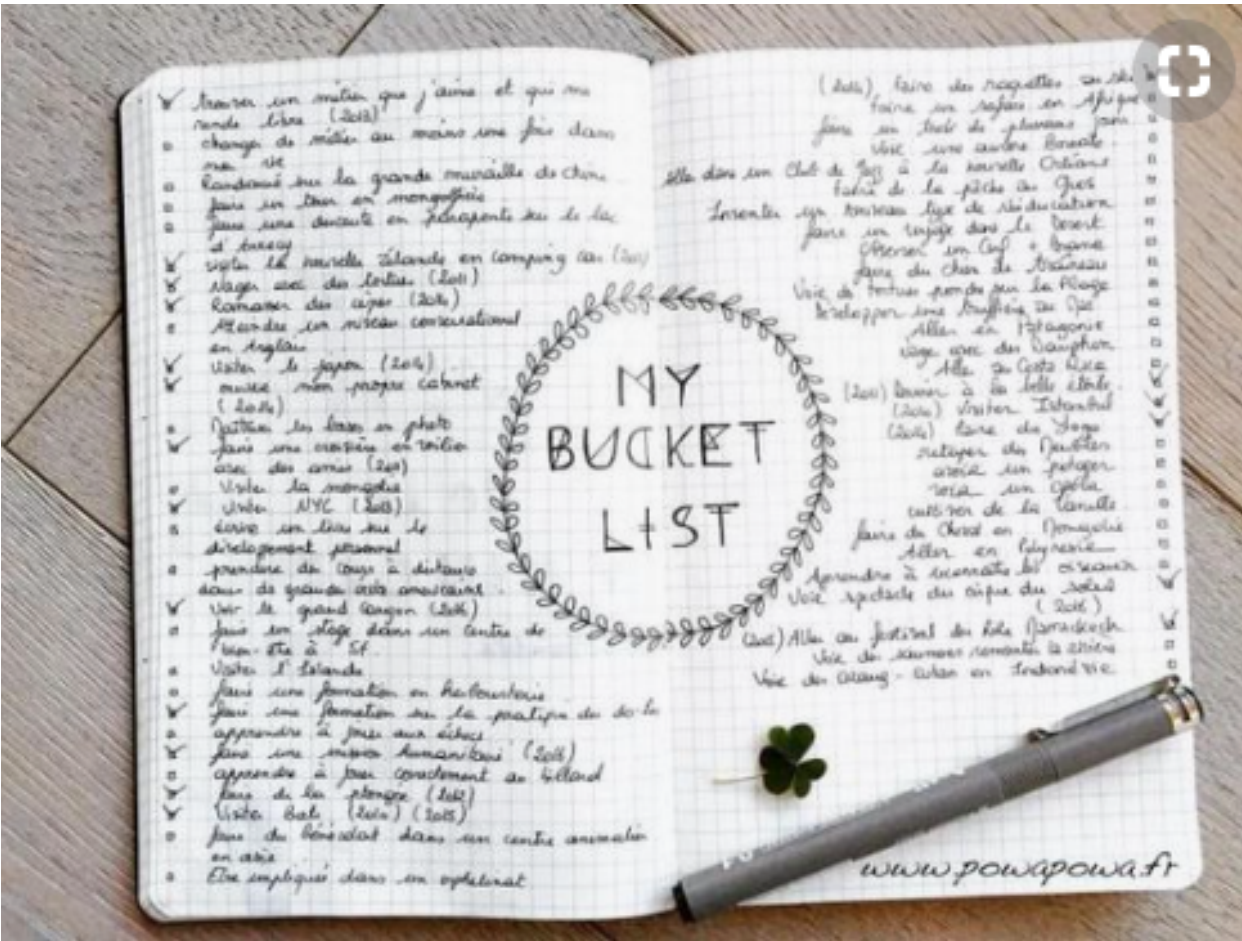 trouver un métier que j'aime et qui me
rende libre (2013)
changer de métier au moins une fois dans
ma vie
Randonné sur la grande muraille de chine
faire un tour en mongolfière
faire une descente en parapente sur le lac
d'annecy
visiter la nouvelle zélande en camping car
Nager avec des tortues (2011)
Ramasser des cèpes
Atteindre un niveau conversationnel
en Anglais
Visiter le japon (2014)
mon propre cabinet
Maîtriser les bases en photo
faire une croisière en voilier
avec des amis
Visiter la mongolie
Visiter NYC (2013)
écrire un livre sur le
développement personnel
prendre des cours à distance
dans de grandes américaines
Voir le grand canyon (2016)
faire un stage dans un centre de
bien-être à SF.
Visiter l'Islande
faire une formation en herboristerie
faire une formation sur la pratique du do-in
apprendre à jouer aux échecs
faire une mission humanitaire (2016)
apprendre à jouer correctement au billard
faire de la plongée
Visiter Bali (2015)
faire du bénévolat dans un centre
en asie
Etre impliquée dans un orphelinat
MY
BUCKET
LIST
faire des raquettes au ski
faire un safari en Afrique
faire un trek de plusieurs jours
Voir une aurore Boréale
aller dans un Club de Jazz à la nouvelle Orléans
faire de la pêche au Gros
Inventer un nouveau type de rééducation
faire un voyage dans le Desert
Observer un Cerf
faire du chien de traineau
Voir des tortues pondre sur la Plage
Aller en Patagonie
nage avec des Dauphins
Aller au Costa Rica
dormir à la belle étoile
visiter Istanbul
faire du Yoga
retaper des Meubles
avoir un potager
voir un opéra
cultiver de la Vanille
faire du Cheval en Mongolie
Aller en Polynesie
Aprendre à reconnaitre les oiseaux
Voir spectacle du cirque du soleil
Aller au festival du Marrakech
Voir des saumons remonter la rivière
Voir des Orang-Outan en Indonésie
www.powapowa.fr